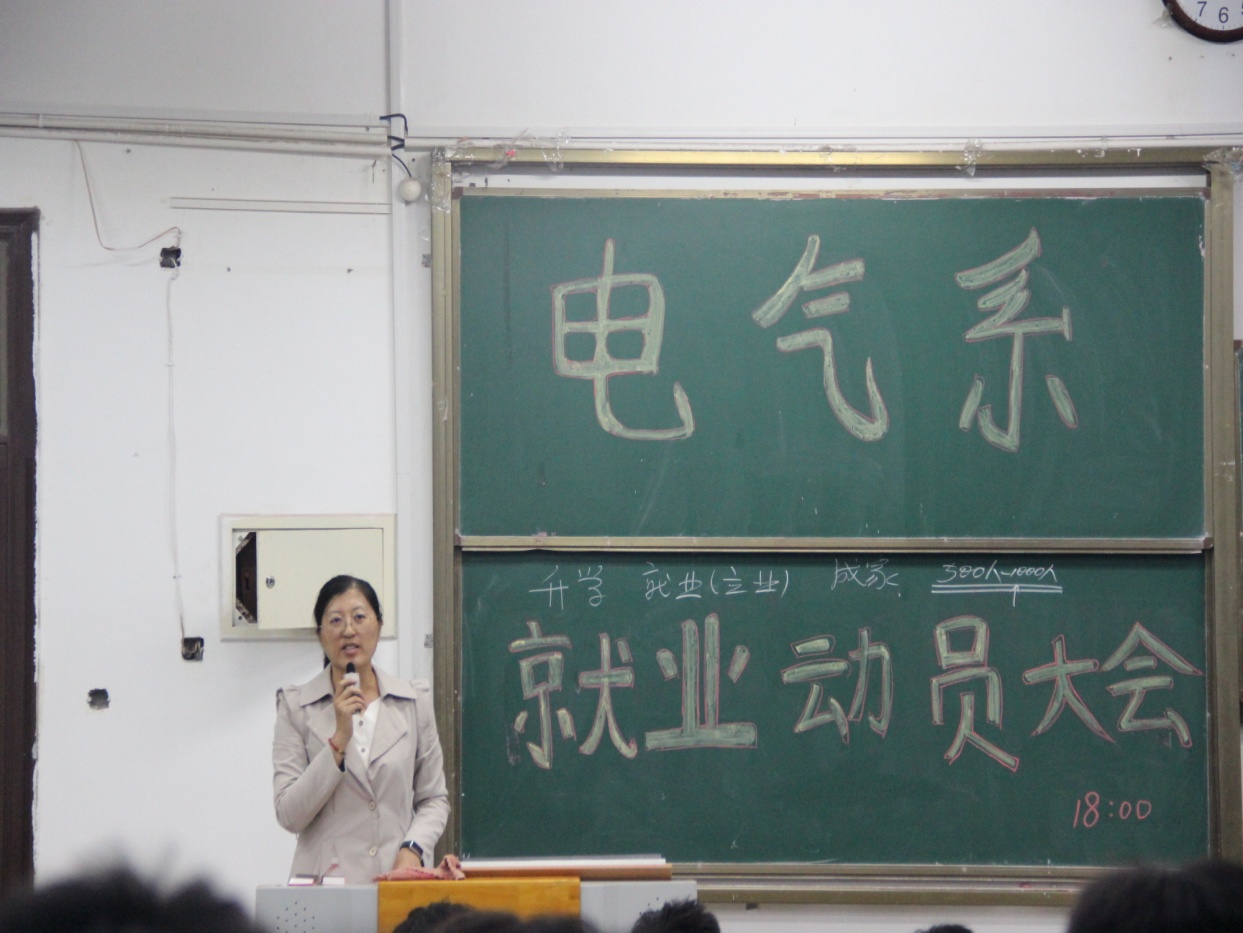 7 6 5
电气系
升学 就业(立业) 成家 300人-1000人
就业动员大会
18:00